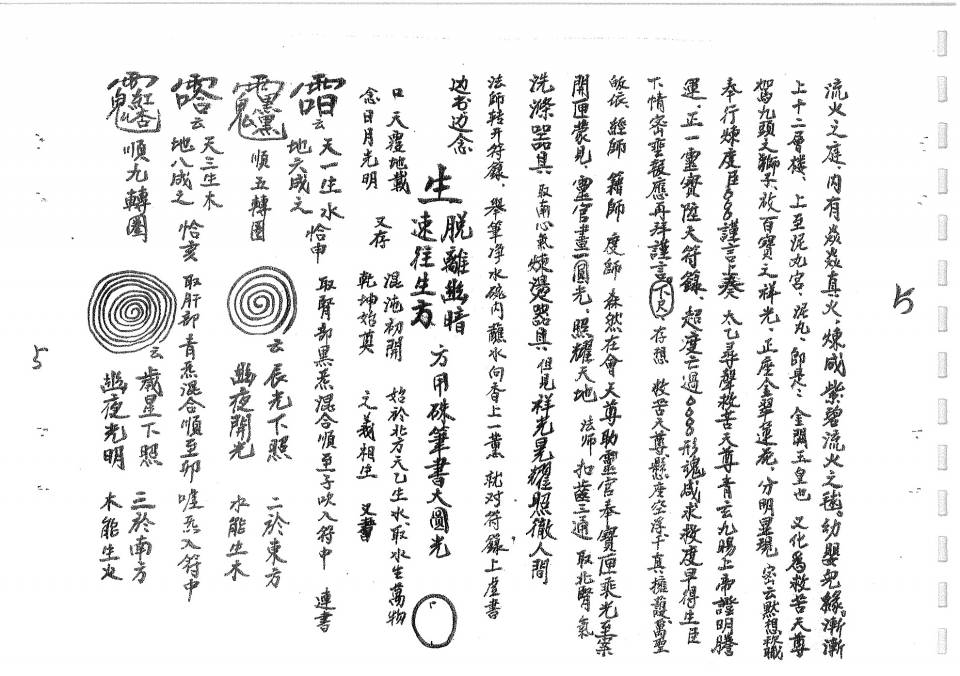 流火之庭、内有焱焱真火、煉成紫碧流火之毬。幼嬰兒緣。漸漸
上十二層樓、上至泥丸宮、泥丸、即是:金闕玉皇也 又化為救苦天尊
駕九頭之獅子、放百寶之祥光、正座金翠蓮花、分明显現 密云默想 職
奉行煉度臣 謹言上奏 太乙尋聲救苦天尊青玄九陽上帝證明騰
運、正一靈寶陞天符籙、超度亡過 形魂咸求救度早得生臣
下情 報應再拜謹言 下尺、存想 救苦天尊懸座空浮千真擁護萬聖
皈依 經師 籍師 度師 森然在會天尊助靈官奉寶匣乘光至案
開匣裳見 靈官畫一圓光、照耀天地 法师 扣齒三通 取北腎氣
洗滌器具、取南心氣煉燙器具、但見祥光晃耀照徹人間
法師轉开符籙、舉筆淨水碗内蘸水向香上一薰 就对符籙上虛書
边书边念
生 脱離幽暗
速往生方 方用硃筆書大圓光
口 天覆地載 又存 混沌初開 始於北方天乙生水、取水生萬物
念日月光明 乾坤始奠 之義相生 又書
云 天一生水 恰申 取腎部黑炁混合順至子吹入符中 連書
地六成之
順五轉圈 云 辰光下照 二於東方
幽夜開光 水能生木
云 天三生木 恰亥 取肝部青炁混合順至卯 炁入符中
地八成之
順九轉圈 云 歲星下照 三於南方
幽夜光明 木能生火
5
5